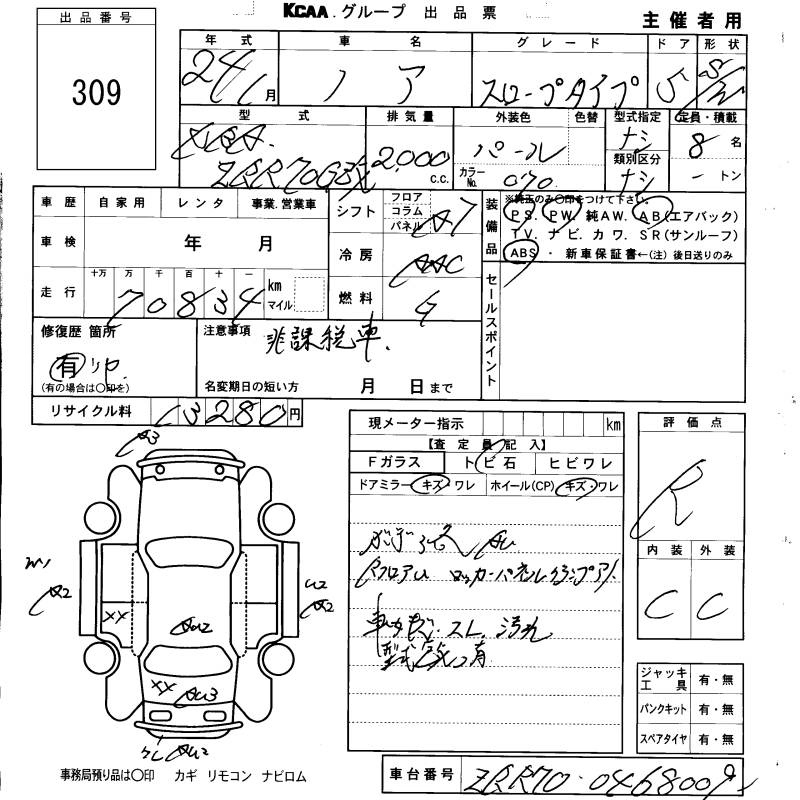 出品番号
309
KCAA.グループ 出品票
主催者用
年式 車名 グレード ドア 形状
24 月 ノア スロープタイプ 5
型式 排気量 外装色 色替 型式指定 定員・積載
DBA- ZRR70GGX 2,000 c.c. パール ナシ 8名
カラーNo. 070 類別区分 ナシ - トン
車歴 自家用 レンタ 事業.営業車
車検 年 月
走行 十万 万 千 百 十 一 km マイル
70834
シフト フロア コラム パネル AT
冷房 AAC
燃料 G
装備品
※純正のみ〇印をつけて下さい。
PS. PW. 純AW. AB(エアバック)
TV. ナビ. カワ. SR(サンルーフ)
ABS ・ 新車保証書←(注)後日送りのみ
セールスポイント
修復歴 箇所
有
(有の場合は〇印を)
注意事項 非課税車.
名変期日の短い方 月 日まで
リサイクル料 13280円
現メーター指示 km
【査定員記入】
Fガラス トビ石 ヒビワレ
ドアミラー キズ・ワレ ホイール(CP) キズ・ワレ
ロッカーパネル
車内 スレ 汚れ
型式 有
評価点
R
内装 外装
C C
ジャッキ工具 有・無
パンクキット 有・無
スペアタイヤ 有・無
A3
A2
XX
U2
A2
XX
事務局預り品は〇印 カギ リモコン ナビロム
車台番号 ZRR70-0468009